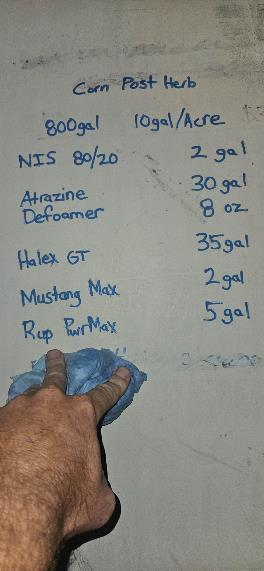 Corn Post Herb
800gal 10gal/Acre
NIS 80/20 2 gal
Atrazine 30 gal
Defoamer 8 oz
Halex GT 35gal
Mustang Max 2gal
Rup PwrMax 5gal